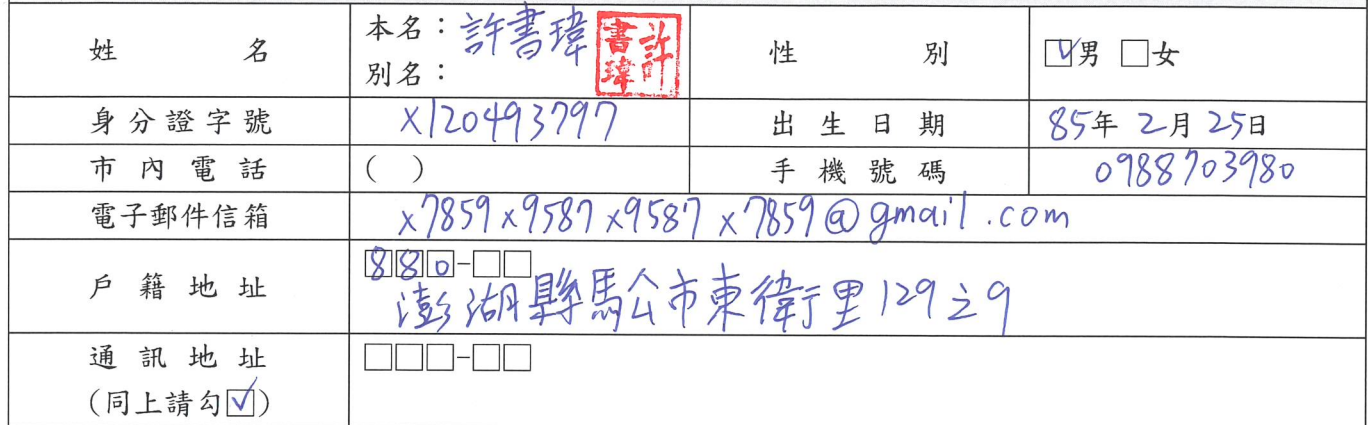 姓名 本名：許書瑋 許書瑋 性別 ☑男 □女
別名：
身分證字號 X120493797 出生日期 85年2月25日
市內電話 ( ) 手機號碼 0988703980
電子郵件信箱 x7859x9587x9587x7859@gmail.com
戶籍地址 880-□□
澎湖縣馬公市東衛里129之9
通訊地址 □□□-□□
(同上請勾☑)